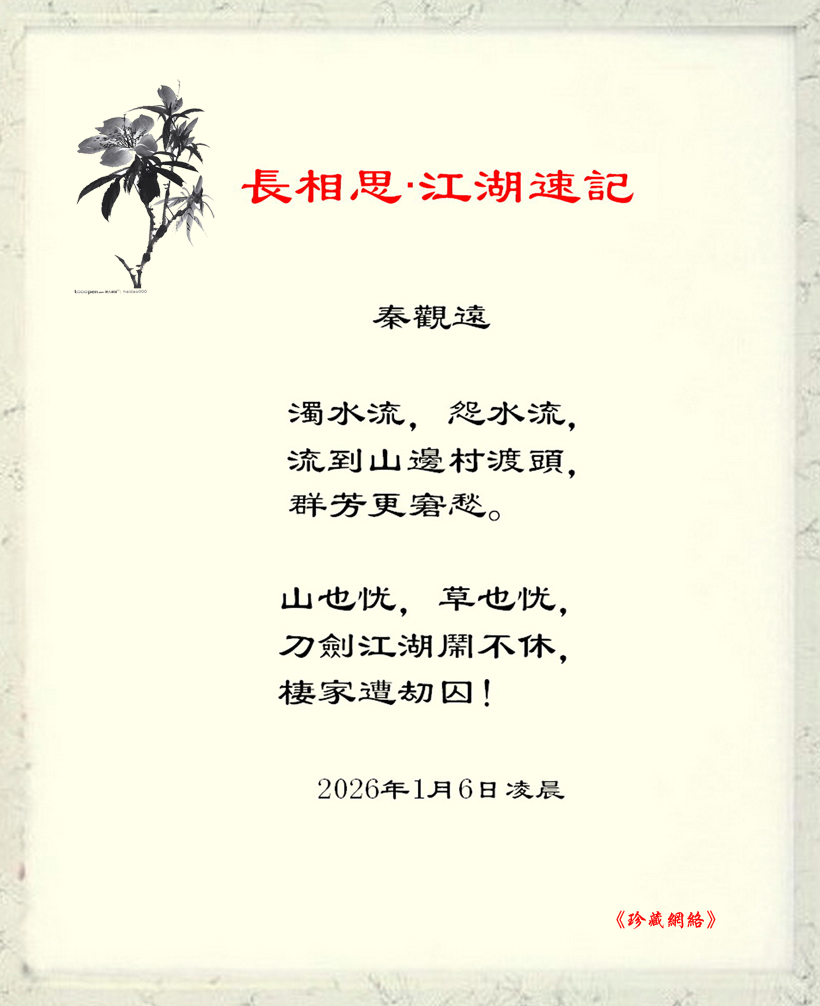 長相思·江湖速記
秦觀遠
濁水流，怨水流，
流到山邊村渡頭，
群芳更窘愁。
山也忧，草也忧，
刀劍江湖鬧不休，
棲家遭劫囚！
2026年1月6日凌晨
《珍藏網絡》